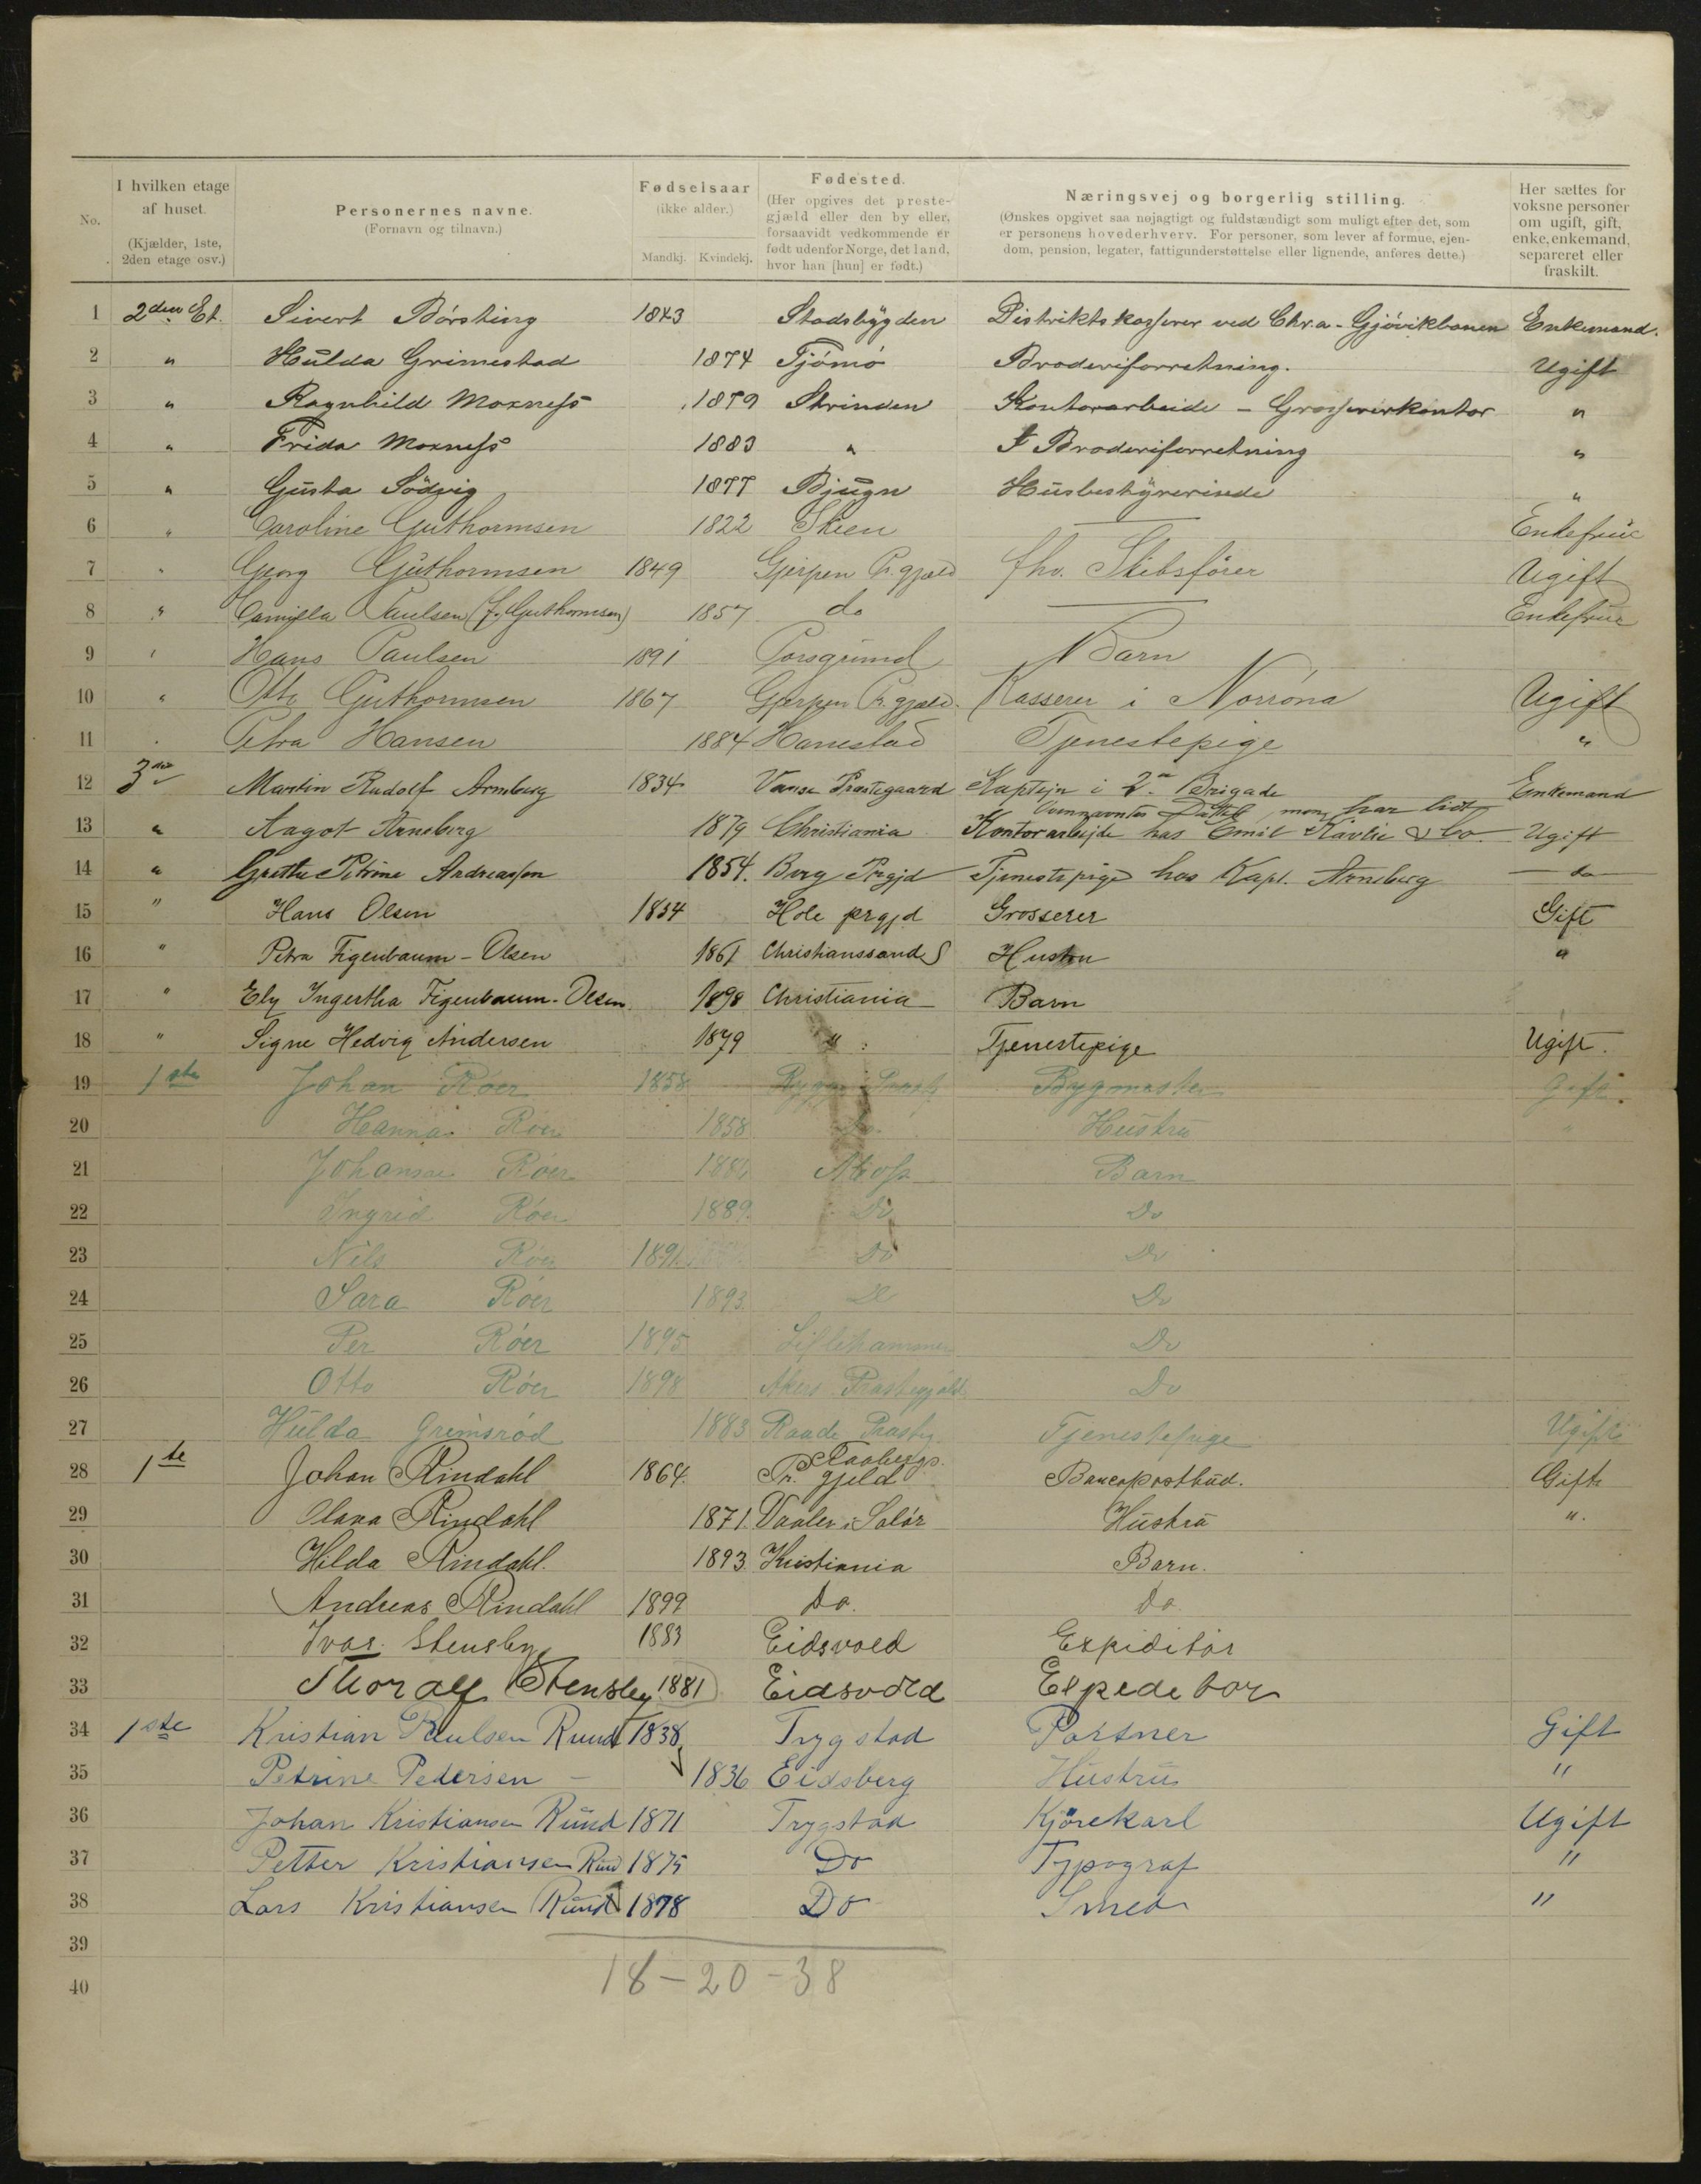 No.
I hvilken etage af huset. (Kjælder, 1ste, 2den etage osv.)
Personernes navne. (Fornavn og tilnavn.)
Fødselsaar (ikke alder.) Mandkj. Kvindekj.
Fødested. (Her opgives det prestegjæld eller den by eller, forsaavidt vedkommende er født udenfor Norge, det land, hvor han [hun] er født.)
Næringsvej og borgerlig stilling. (Ønskes opgivet saa nøjagtigt og fuldstændigt som muligt efter det, som er personens hovederhverv. For personer, som lever af formue, ejendom, pension, legater, fattigunderstøttelse eller lignende, anføres dette.)
Her sættes for voksne personer om ugift, gift, enke, enkemand, separeret eller fraskilt.
1 2den Et. Sivert Børsting 1843 Stadsbygden Distriktskasserer ved Chr.a - Gjøvikbanen Enkemand.
2 " Hulda Grimestad 1874 Tjømø Broderiforretning. Ugift
3 " Ragnhild Moxness 1879 Strinden Kontorarbeide - Grossererkontor "
4 " Frida Moxness 1883 " I Broderiforretning "
5 " Gusta Södvig 1877 Bjugn Husbestyrerinde "
6 " Caroline Guthormsen 1822 Skien — Enkefrue
7 " Georg Guthormsen 1849 Gjerpen Pr.gjæld fhv. Skibsfører Ugift
8 " Camilla Paulsen (f. Guthormsen) 1857 do — Enkefrue
9 " Hans Paulsen 1891 Porsgrund Barn
10 " Otto Guthormsen 1867 Gjerpen Pr.gjæld. Kasserer i Norröna Ugift
11 " Petra Hansen 1884 Hanestad Tjenestepige "
12 3die Martin Rudolf Arneberg 1834 Vanse Prestegaard Kaptejn i 2den Brigade Enkemand
13 " Aagot Arneberg 1879 Christiania Kontorarbejde hos Emil & Co. Ugift
14 " Grethe Petrine Andreassen 1854. Berg Prgjd Tjenestepige hos Kapt. Arneberg — do —
15 " Hans Olsen 1854 Hole prgjd Grosserer Gift
16 " Petra Figenbaum - Olsen 1861 Christianssand S Hustru "
17 " Ely Ingertha Figenbaum - Olsen 1898 Christiania Barn
18 " Signe Hedvig Andersen 1879 " Tjenestepige Ugift.
19 1ste Johan Röer 1858 Rygge Bygmester Gift.
20 Hanna Röer 1858 Do. Hustru "
21 Röer Moss Barn
22 Ingrid Röer 1889. Do Do
23 Nils Röer 1891. Do Do
24 Sara Röer 1893. Do Do
25 Per Röer 1895 Lillehammer Do
26 Otto Röer 1898 Akers Præstegjæld Do
27 Hulda Grimsröd 1883 Raade Tjenestepige Ugift
28 1ste Johan Rindahl 1864. Faabergs Pr. gjeld Gift
29 Olava Rindahl 1871. Vaaler i Solör Hustru ".
30 Hilda Rindahl. 1893. Kristiania Barn.
31 Andreas Rindahl 1899 Do. Do.
32 Ivar Stensby 1883 Eidsvold Expiditör
33 Thoralf Stensby 1881 Eidsvold Expeditör
34 1ste Kristian Paulsen Rund 1838 Trygstad Portner Gift
35 Petrine Pedersen - 1836 Eidsberg Hustru "
36 Johan Kristiansen Rund 1871 Trygstad Kjörekarl Ugift
37 Petter Kristiansen Rund 1875 Do Typograf "
38 Lars Kristiansen Rund 1878 Do Smed "
39
40
18 - 20 - 38